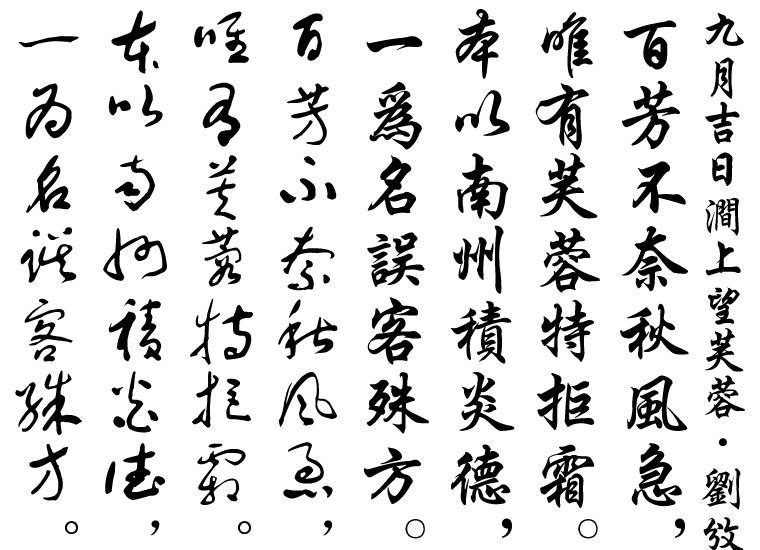 九月吉日澗上望芙蓉·劉攽
百芳不奈秋風急，
唯有芙蓉特拒霜。
本以南州積炎德，
一為名誤客殊方。
百芳不奈秋風急，
唯有芙蓉特拒霜。
本以南州積炎德，
一為名誤客殊方。